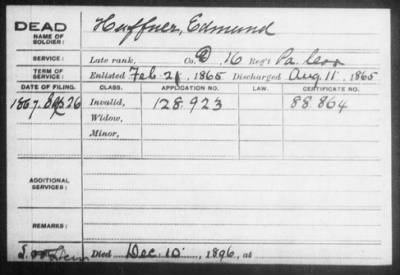 DEAD Huffner, Edmund
NAME OF SOLDIER:
SERVICE: Late rank, Co. D, 16 Reg't Pa. Cav
TERM OF SERVICE: Enlisted Feb. 21, 1865 Discharged Aug. 11, 1865
DATE OF FILING. CLASS. APPLICATION NO. LAW. CERTIFICATE NO.
1867. Sep 26 Invalid, 128.923 88.864
Widow,
Minor,
ADDITIONAL SERVICES:
REMARKS:
Died Dec. 10, 1896, at